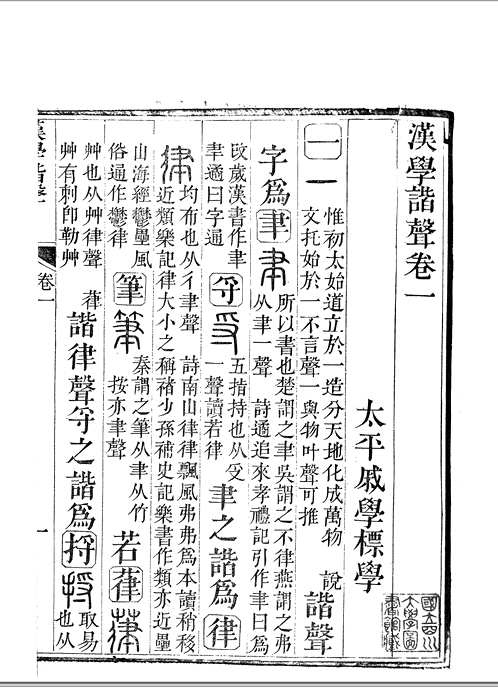 漢學諧聲卷一
太平戚學標學
一 一
惟初太始道立於一造分天地化成萬物 說
文托始於一不言聲一與物叶聲可推
諧聲
字爲聿 聿
所以書也楚謂之聿吳謂之不律燕謂之弗
从聿一聲 詩遹追來孝禮記引作聿曰爲
改歲漢書作聿
聿遹曰字通
寽 寽
五指持也从𠬪
一聲讀若律
聿之諧爲律
律
均布也从彳聿聲 詩南山律律飄風弗弗爲本讀稍移
近類樂記律大小之稱褚少孫補史記樂書作類亦近壘
山海經鬱壘風
俗通作鬱律
筆 筆
秦謂之筆从聿从竹
按亦聿聲
若葎 葎
艸也从艸律聲
艸有刺卽勒艸 葎
諧律聲寽之諧爲捋 捋
取易
也从
漢學諧聲
卷一
一
國立四川
大學圖
書館藏